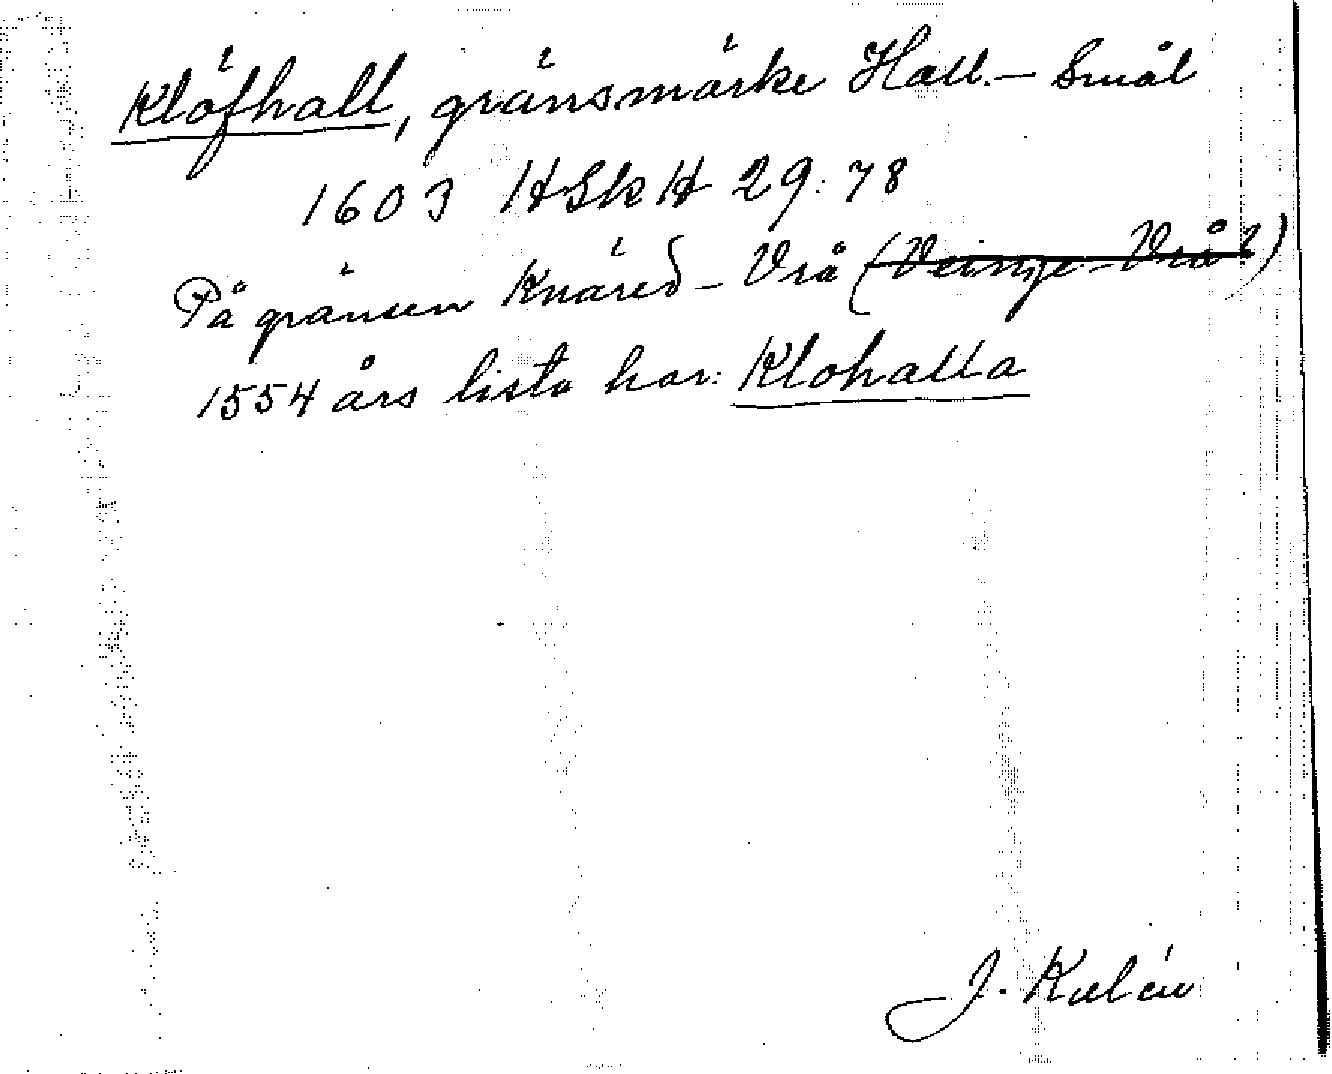 Klöfhall, gränsmärke Hall. – Smål
1603 HSkH 29:78
På gränsen Knäred – Vrå (Veinge – Vrå?)
1554 års lista har: Klohalla
J. Kalén